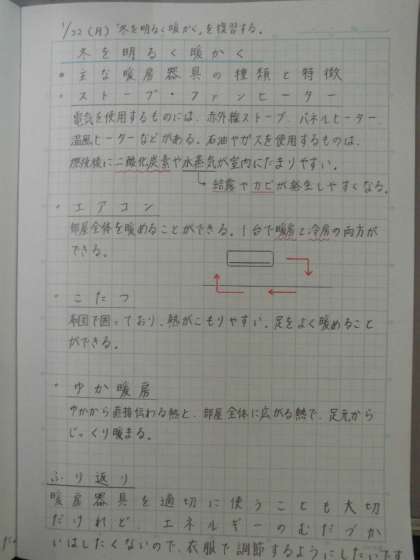 1/22(月)"冬を明るく暖かく"を復習する。
冬を明るく暖かく
●主な暖房器具の種類と特徴
・ストーブ・ファンヒーター
電気を使用するものには、赤外線ストーブ、パネルヒーター、
温風ヒーターなどがある。石油やガスを使用するものは、
燃焼後に二酸化炭素や水蒸気が室内にたまりやすい。
結露やカビが発生しやすくなる。
・エアコン
部屋全体を暖めることができる。1台で暖房と冷房の両方が
できる。
・こたつ
布団で囲っており、熱がこもりやすい。足をよく暖めること
ができる。
・ゆか暖房
ゆかから直接伝わる熱と、部屋全体に広がる熱で、足元から
じっくり暖まる。
ふり返り
暖房器具を適切に使うことも大切
だけれど、エネルギーのむだづか
いはしたくないので、衣服で調節するようにしたいです